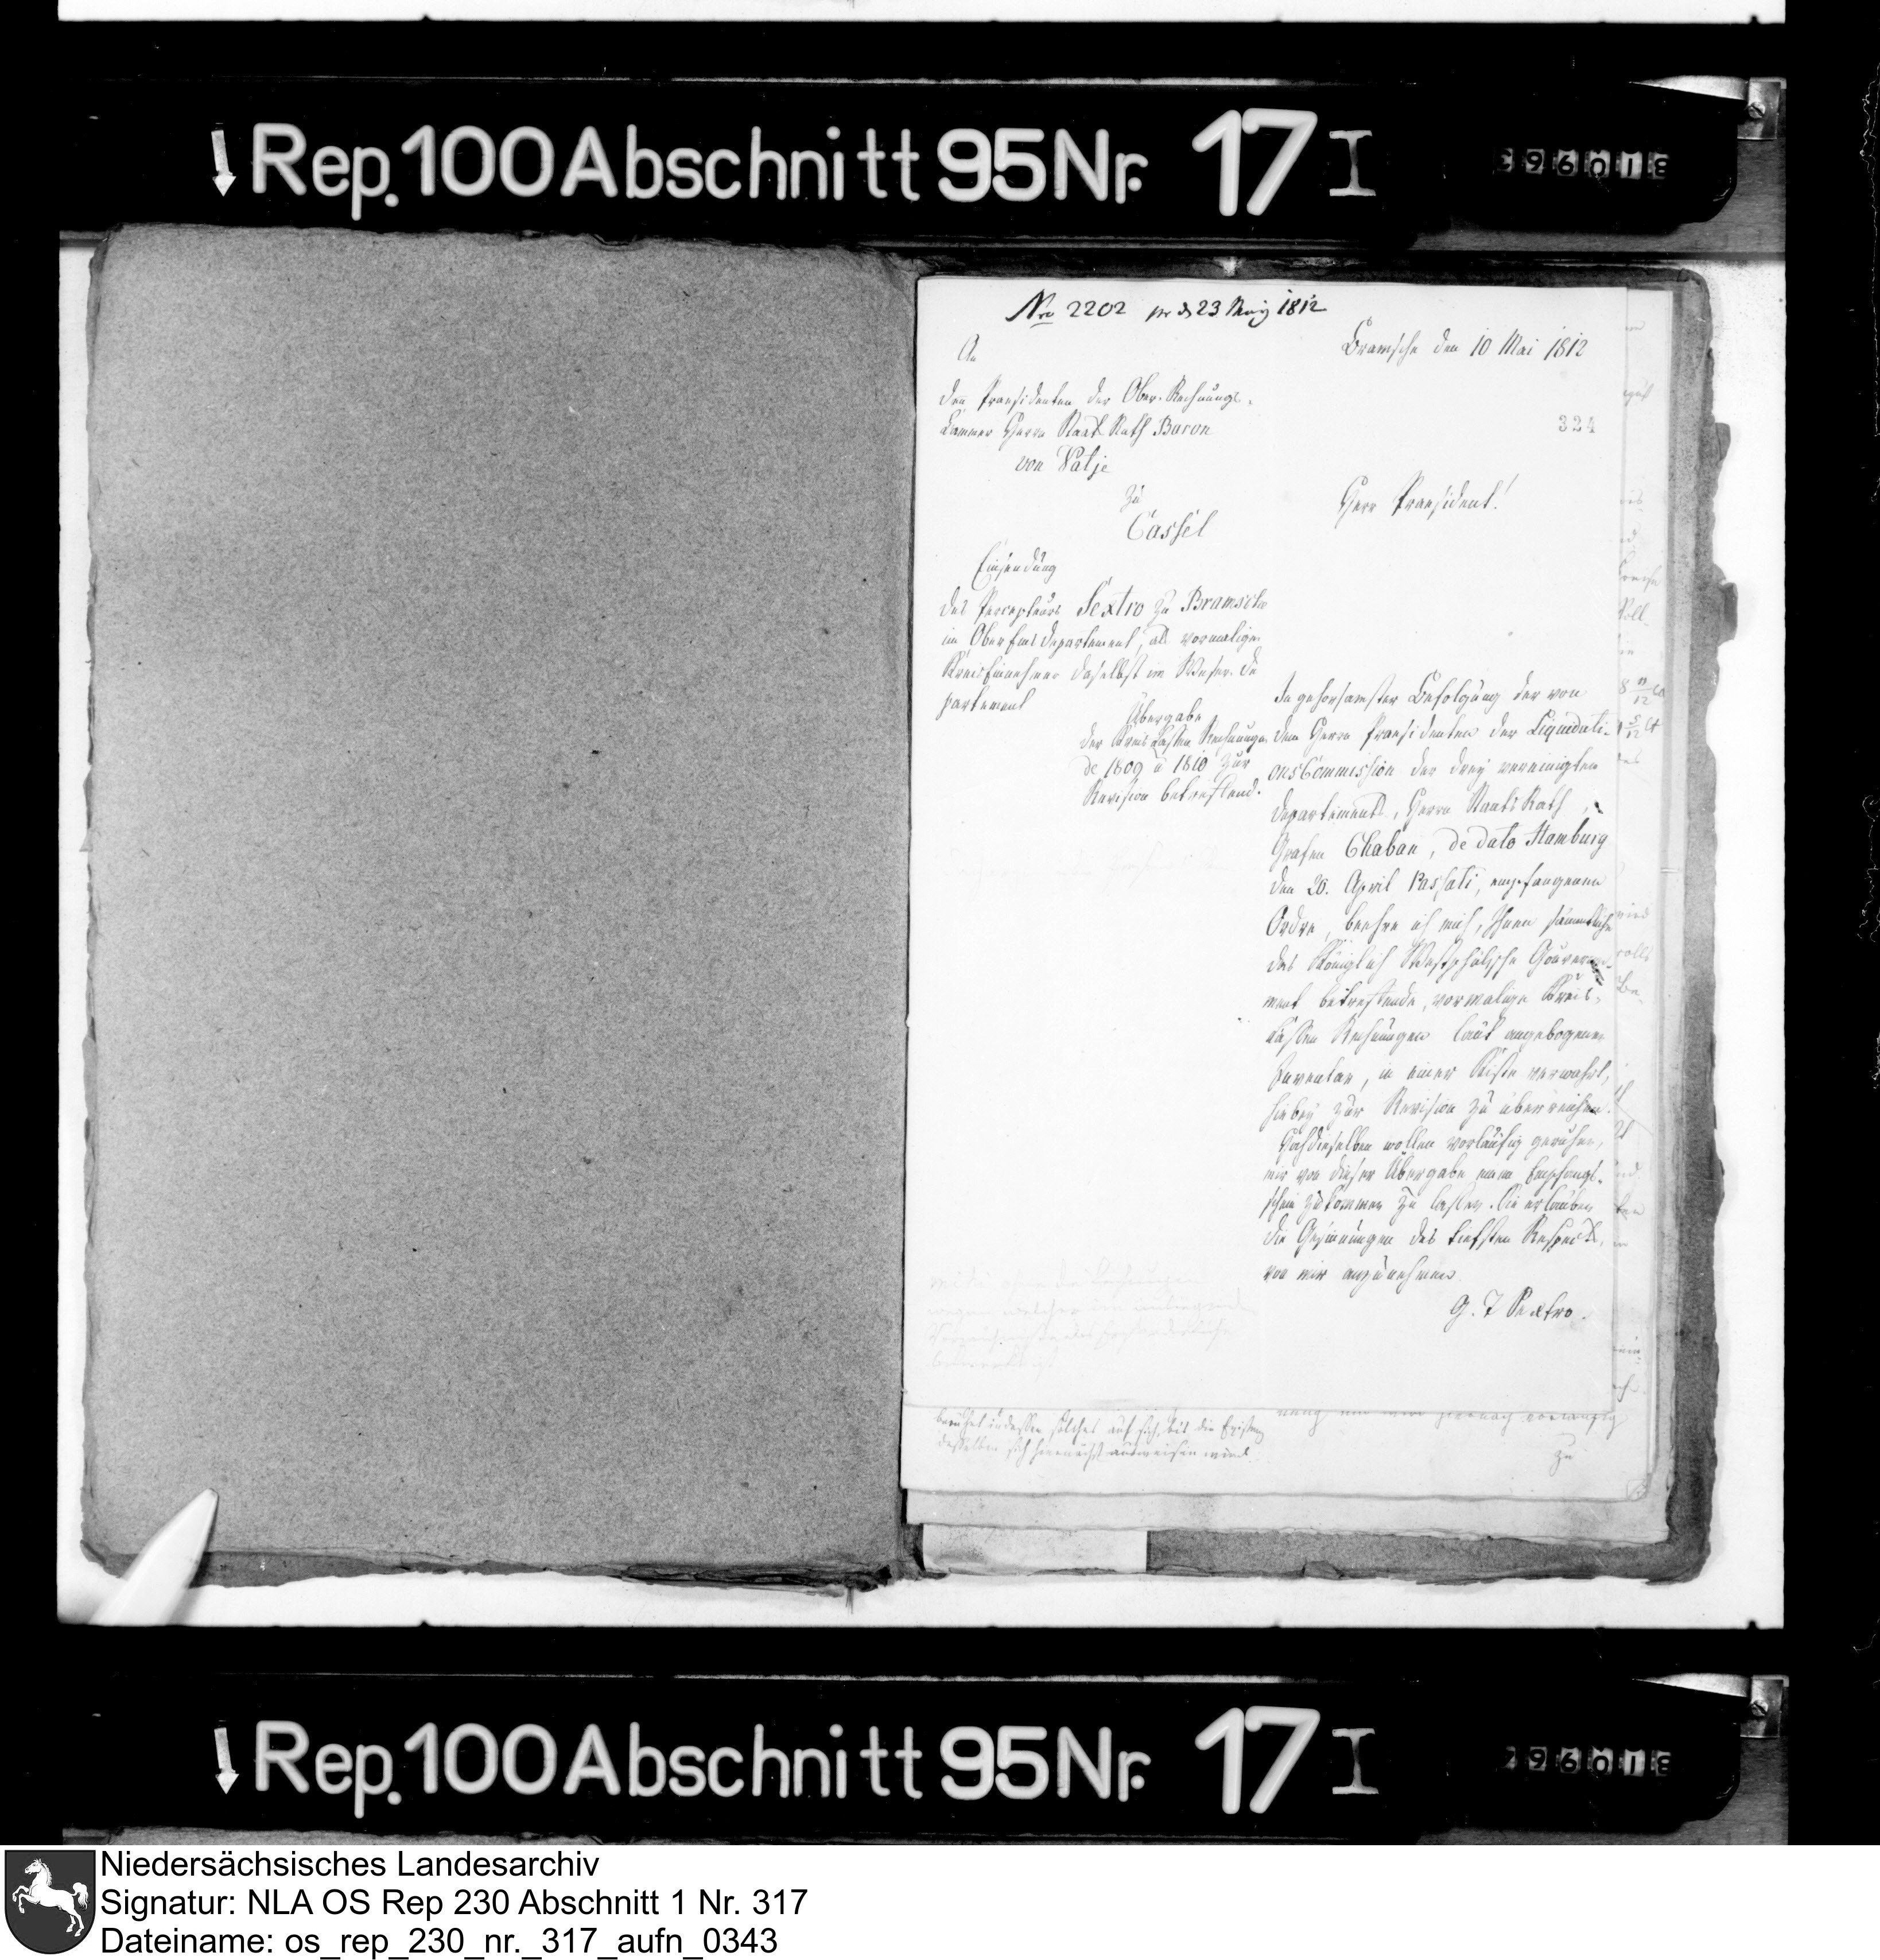 Rep. 100 Abschnitt 95 Nr. 17 I
Nro 2202 pr d 23 May 1812
Bramsche den 10 Mai 1812
An
den Praesidenten der Ober-Rechnungs-
Kammer Herrn Staats Rath Baron
von Patje
zu
Cassel
324
Herr Praesident!
Einsendung
des Percepteurs Sextro zu Bramsche
im Ober Ems Departement, als vormaligen
Kreis Einnehmer daselbst im Weser-De
partement
Übergabe
der Kreis Cassen Rechnungen
de 1809 u 1810 zur
Revision betreffend.
In gehorsamster Befolgung der von
dem Herrn Praesidenten der Liquidati-
ons Commission der drey vereinigten
Departements, Herrn Staats Rath
Grafen Chaban, de dato Hamburg
den 20. April passati, empfangenen
Ordre, beehre ich mich, Ihnen sämmtliche
das Königlich Westphälische Gouverne-
ment betreffende, vormalige Kreis-
Cassen Rechnungen laut angebogenen
Inventar, in einer Kiste verwahrt,
hiebey zur Revision zu überreichen.
Hochdieselben wollen vorläufig geruhen,
mir von dieser Übergabe einen Empfangs-
schein zukommen zu lassen. Sie erlauben
die Gesinnungen des tiefsten Respects,
von mir anzunehmen
G. F Sextro.
beruhet indessen solches auf sich, bis die
desselben sich hiernächst ausweisen wird.
zu
Rep. 100 Abschnitt 95 Nr. 17 I
Niedersächsisches Landesarchiv
Signatur: NLA OS Rep 230 Abschnitt 1 Nr. 317
Dateiname: os_rep_230_nr._317_aufn_0343